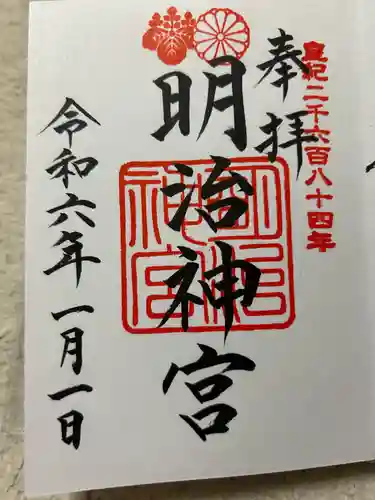 皇紀二千六百八十四年
奉拝
明治神宮
明治神宮
令和六年 一月一日